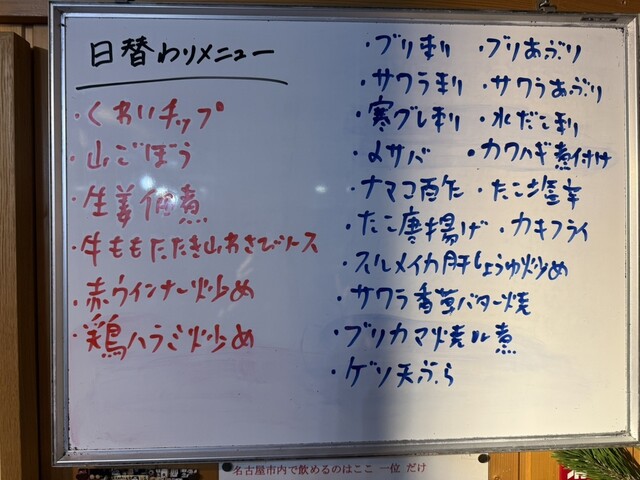 日替わりメニュー
・くわいチップ
・山ごぼう
・生姜佃煮
・牛ももたたき山わさびソース
・赤ウインナー炒め
・鶏ハラミ炒め
・ブリ刺り ・ブリあぶり
・サワラ刺り ・サワラあぶり
・寒グレ刺り ・水だこ刺り
・〆サバ ・カワハギ煮付け
・ナマコ酉乍 ・たこ塩辛
・たこ唐揚げ ・カキフライ
・スルメイカ肝しょうゆ炒め
・サワラ香草バター焼
・ブリカマ焼or煮
・ゲソ天ぷら
名古屋市内で飲めるのはここ 一位 だけ